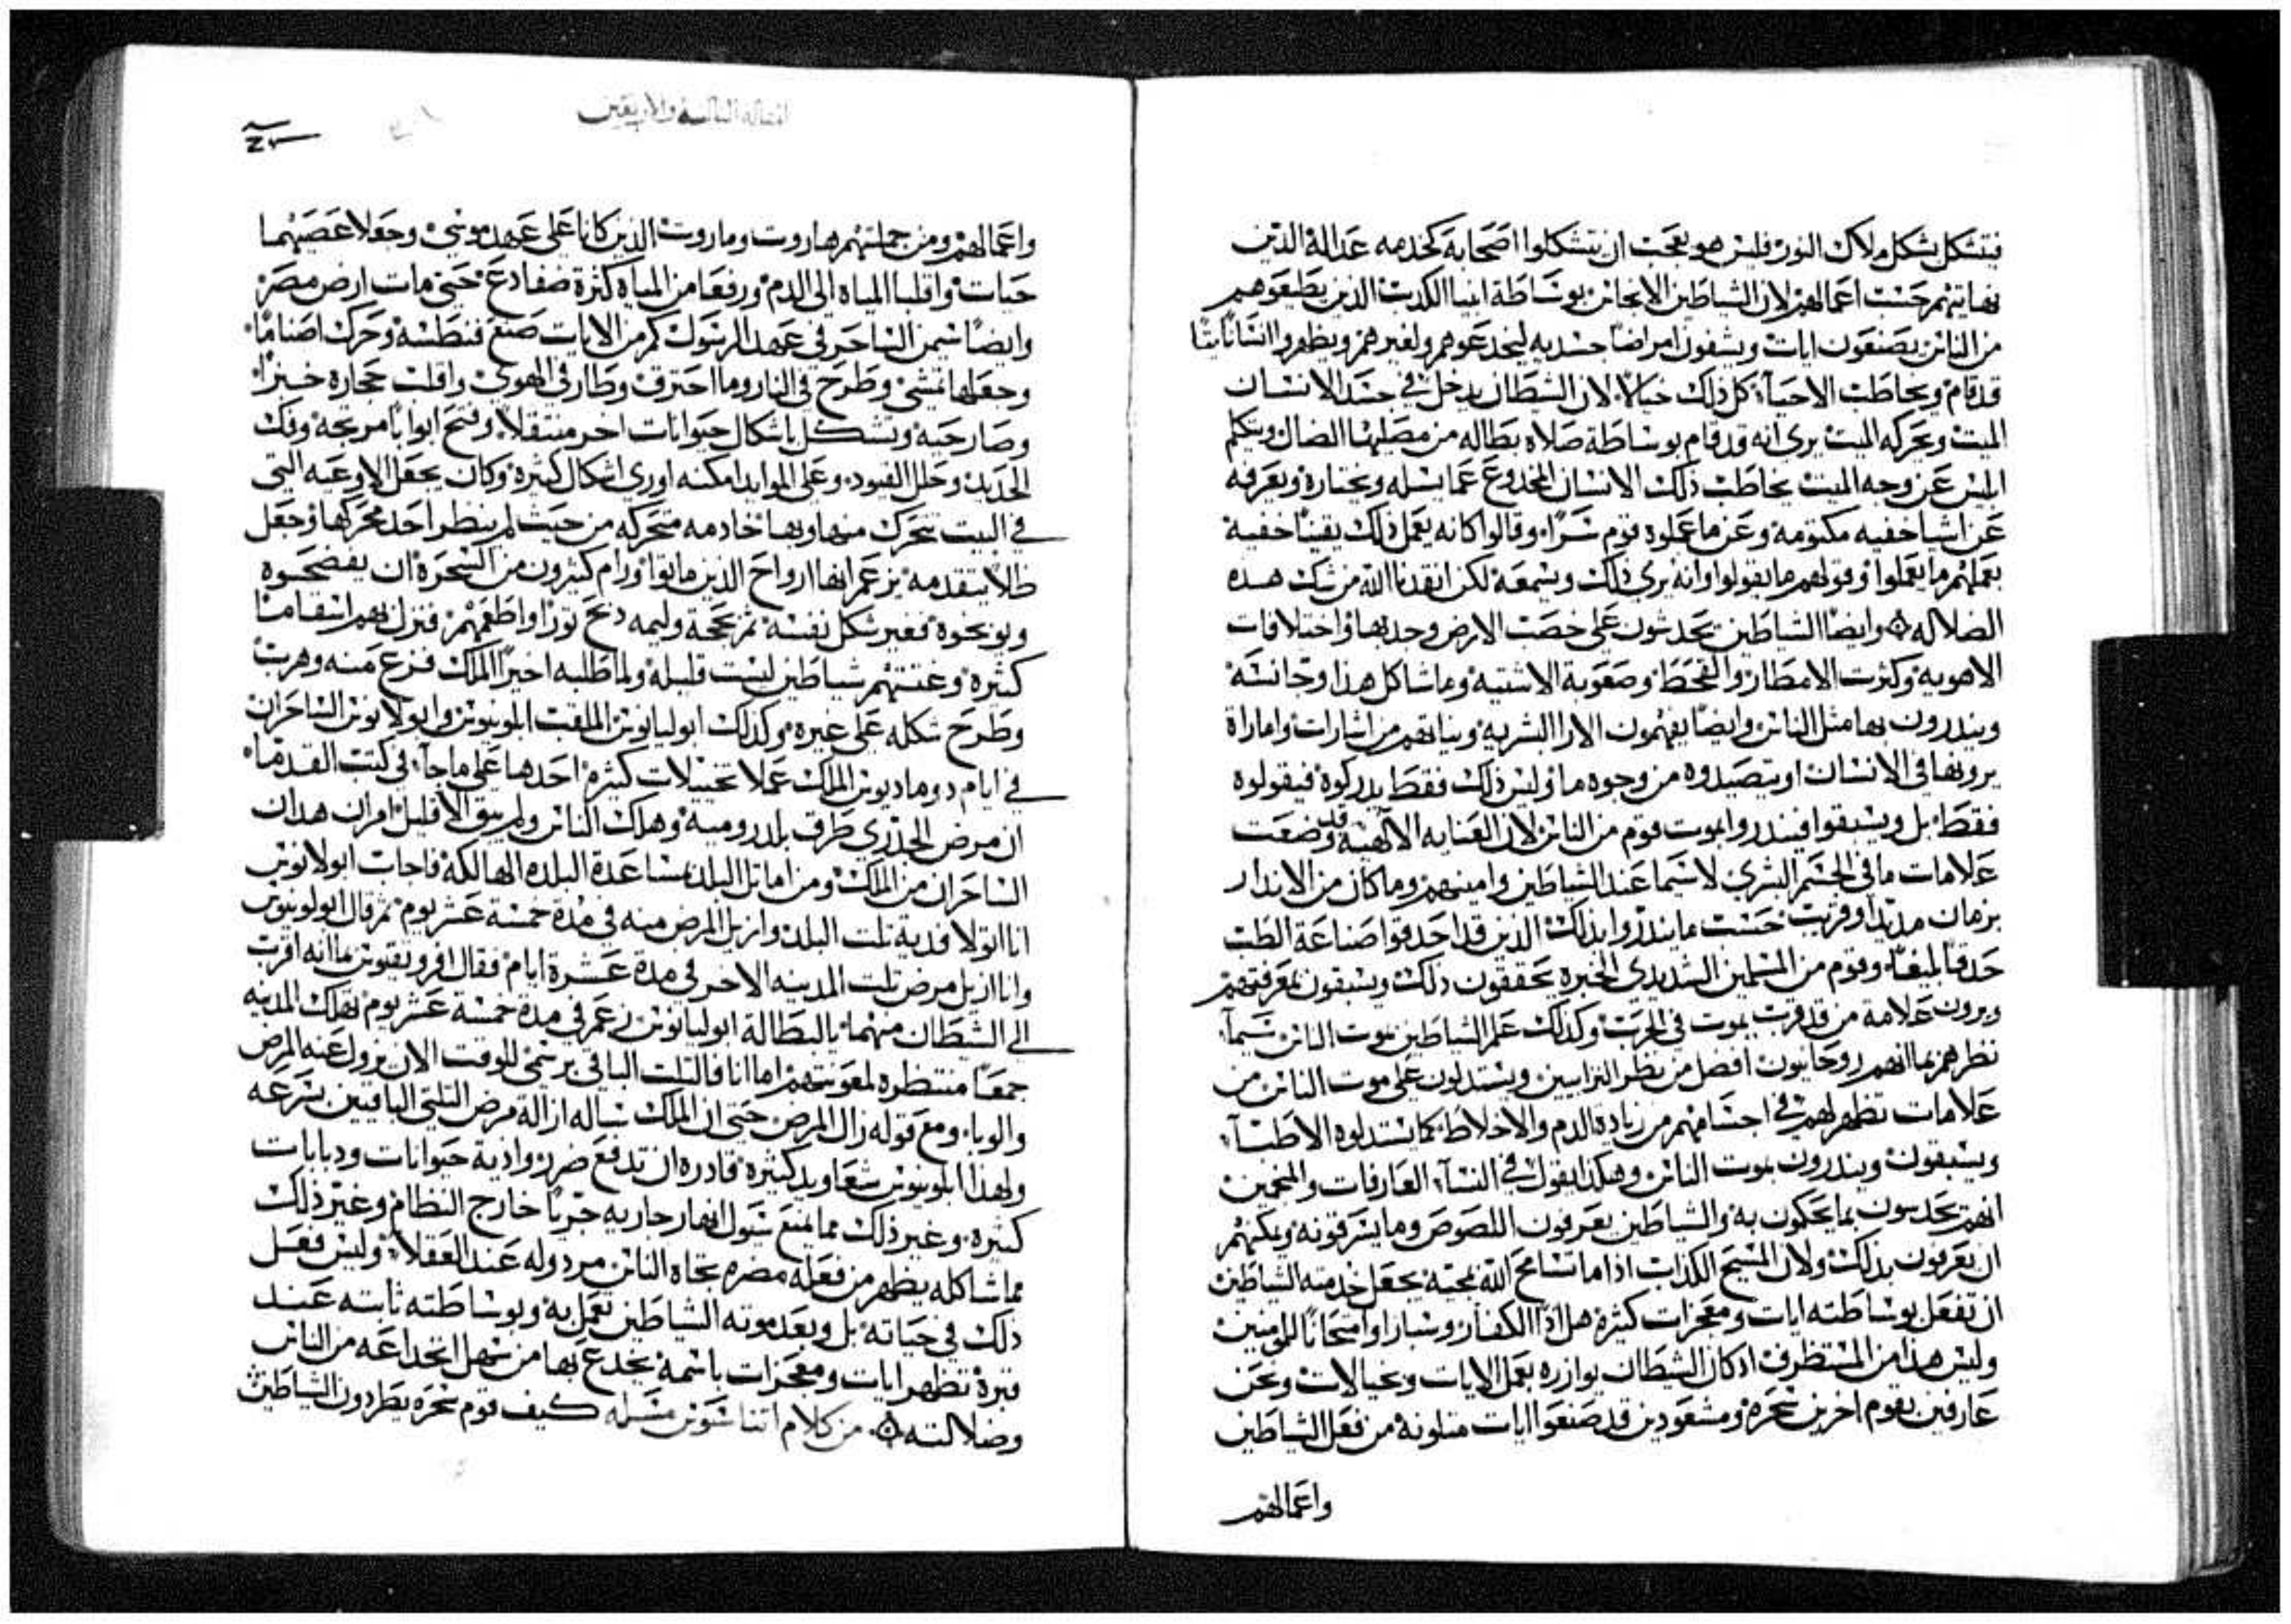 فيتشكل بشكل ملاك النور فليس هو بعجب ان يتشكلوا اصحابه كخدمه عدالة الذين
نهايتهم حسب اعمالهم لان الشياطين الانجاس بوساطة انبيا الكدب الذين يطيعوهم
من الناس يصنعون ايات ويشفون امراضا جسديه ليخدعوهم ولغيرهم ويظهروا انسانا ميتا
قد قام ويخاطب الاحياء كل ذلك خيالا لان الشيطان يدخل في جسد الانسان
الميت ويحركه الميت يرى انه قد قام بوساطة صلاه بطاله من مصليها الضال ويتكلم
ابليس عن وجه الميت يخاطب ذلك الانسان المخدوع عما يسله ويختاره ويعرفه
عن اشيا خفيه مكتومة وعن ما عملوه قوم سرا وقالوا كانه يعمل ذلك يقينا خفية
بعملهم ما يعملوا وقولهم ما يقولوا وانه يرى ذلك ويسمعه لكن انقدنا الله من شك هذه
الضلاله وايضا الشياطين يحدثون على خصب الارض وجدبها واختلافات
الاهوية وكثرت الامطار والقحط وصعوبة الاشتيه وما شاكل هذا وجانسه
وينذرون بها مثل الناس وايضا يفهمون الارا البشريه ونياتهم من اشارات وامارات
يرونها في الانسان او يتصيدوه من وجوه ما وليس ذلك فقط يدركوه فيقولوه
فقط بل ويسبقوا فينذروا بموت قوم من الناس لان العنايه الالهية قد وضعت
علامات ما في الجسم البشري لاسيما عند الشياطين وامينهم وما كان من الاندار
بزمان مديد او قريب حسب ما ينذروا بذلك الذين قد احدقوا صناعة الطب
حدقا بليغا وقوم من المسلمين الشديدي الخبره يحققون ذلك ويسبقون بمعرفتهم
ويرون علامة من قد قرب يموت في الحرب وكذلك علم الشياطين بموت الناس سيما
نظرهم بما انهم روحانيون افضل من نظر الترابيين ويستدلون على موت الناس من
علامات تظهر لهم في اجسامهم من زيادة الدم والاخلاط كما يستدلوه الاطباء
ويسبقون وينذرون بموت الناس وهكذا يقول في النساء العارفات والمنجمين
انهم يحدسون بما يحكون به والشياطين يعرفون اللصوص وما يسرقونه ويمكنهم
ان يعرفون بذلك ولان المسيح الكذاب اذا ما تسامح الله بمجيئه يجعل خدمته الشياطين
ان تفعل بوساطته ايات ومعجزات كثيرة هلاكا للكفار واختبارا وامتحانا للمومنين
وليس هذا من المستظرف اذ كان الشيطان يوازره بعمل الايات وخيالات ونحن
عارفين بقوم اخرين سحره ومشعودين قد صنعوا ايات متلونة من فعل الشياطين
واعمالهم
المقالة الثالثة والاربعين
واعمالهم ومن جملتهم هاروت وماروت الذين كانا على عهد موسى وجعلا عصيهما
حيات واقلبا المياه الى الدم ورفعا من المياه كثرة ضفادع حتى مات ارض مصر
وايضا سيمن الساحر في عهد الرسول كم من الايات صنع فنطسة وحرك اصناما
وجعلها تمشي وطرح في النار وما احترق وطار في الهوى واقلب حجارة خبزا
وصار حية وتشكل باشكال حيوانات اخر منتقلا وفتح ابوابا مرتجة وفك
الحديد وحلل القيود وعلى الموايد امكنه اورى اشكال كثيرة وكان يجعل الاوعيه التي
في البيت تتحرك منها وبها خادمه متحركه من حيث لم ينظر احد محركها وجعل
ظلالا يتقدمه يزعم انها ارواح الذين ماتوا ورام كثيرون من السحرة ان يفضحوه
ويوبخوه فغير شكل نفسه ثم بحجة وليمه ذبح ثورا واطعمهم فنزل بهم اسقاما
كثيرة وعتبتهم شياطين ليست قليله ولما طلبه اخيرا الملك فزع منه وهرب
وطرح شكله على غيره وكذلك ابوليانوس الملقب ابلونيوس وابولانوس الساحران
في ايام دوماديوس الملك عملا تخييلات كثيرة احدها على ما جاء في كتب القدما
ان مرض الجذري طرق بلد روميه وهلك الناس ولم يبق الا قليل امران هدان
الساحران من الملك ومن اماثل البلد مساعدة البلده الهالكة فاجاب ابولانوس
انا اتولا فدية ثلث البلد وازيل المرض منه في مدة خمسة عشر يوم ثم قال ابولونيوس
وانا ازيل مرض ثلث المدينه الاخر في مدة عشرة ايام فقال بما انه اقرب
الى الشيطان منهما بالبطالة ابوليانوس زعم في مدة خمسة عشر يوم تهلك المدينه
جمعا منتظرة لمعونتهم اما انا فالثلث الباقي برسمي للوقت الان يزول عنه المرض
والوبا ومع قوله زال المرض حتى ان الملك ساله ازالة مرض الثلثي الباقيين بسرعه
ولهذا ابلونيوس شعاويد كثيرة قادره ان تدفع ضرر واذية حيوانات ودبابات
كثيرة وغير ذلك مما يمنع سيول انهار جاريه جريا خارج النظام وغير ذلك
مما شاكله يظهر من فعله مضره تجاه الناس مردوله عند العقلاء وليس فعل
ذلك في حياته بل وبعد موته الشياطين تعمل به وبوساطته ثابته عند
قبره تظهر ايات ومعجزات باسمه يخدع بها من سهل انخداعه من الناس
وضلالته من كلام اتناسوس مسله كيف قوم سحره يطردون الشياطين